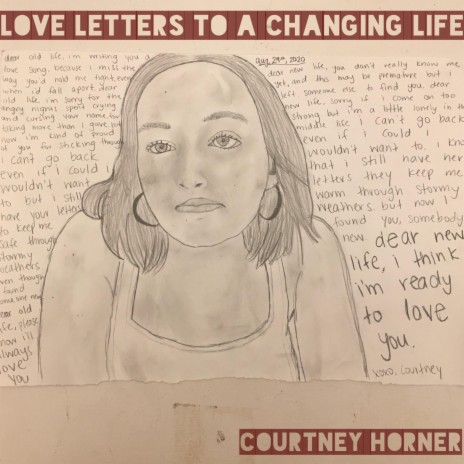 LOVE LETTERS TO A CHANGING LIFE
dear old life, i'm writing you a
love song, because i miss the
way you'd had me tight, even
when i'd fall apart. dear
old life, i'm sorry for the
angry nights spent crying
and cursing your name, for
taking more than i gave, but
now i'm kind of proud
of you for sticking through
i can't go back
even if i could i
wouldn't want
to but i still
have your letters
to keep me
safe through
stormy
weathers
even though
found
new
dear old
life, please
know i'll
always
love
you
Aug 29th, 2020
dear new life, you don't really know me
yet, and this may be premature but i
left someone else to find you, dear
new life, sorry if i come on too
strong but i'm a little lonely in the
middle life i can't go back
even if i could i
wouldn't want to. i know
that i still have her
letters they keep me
warm through stormy
weathers but now i
found you, somebody
new dear new
life, i think
i'm ready
to love
you.
xoxo, courtney
COURTNEY HORNER